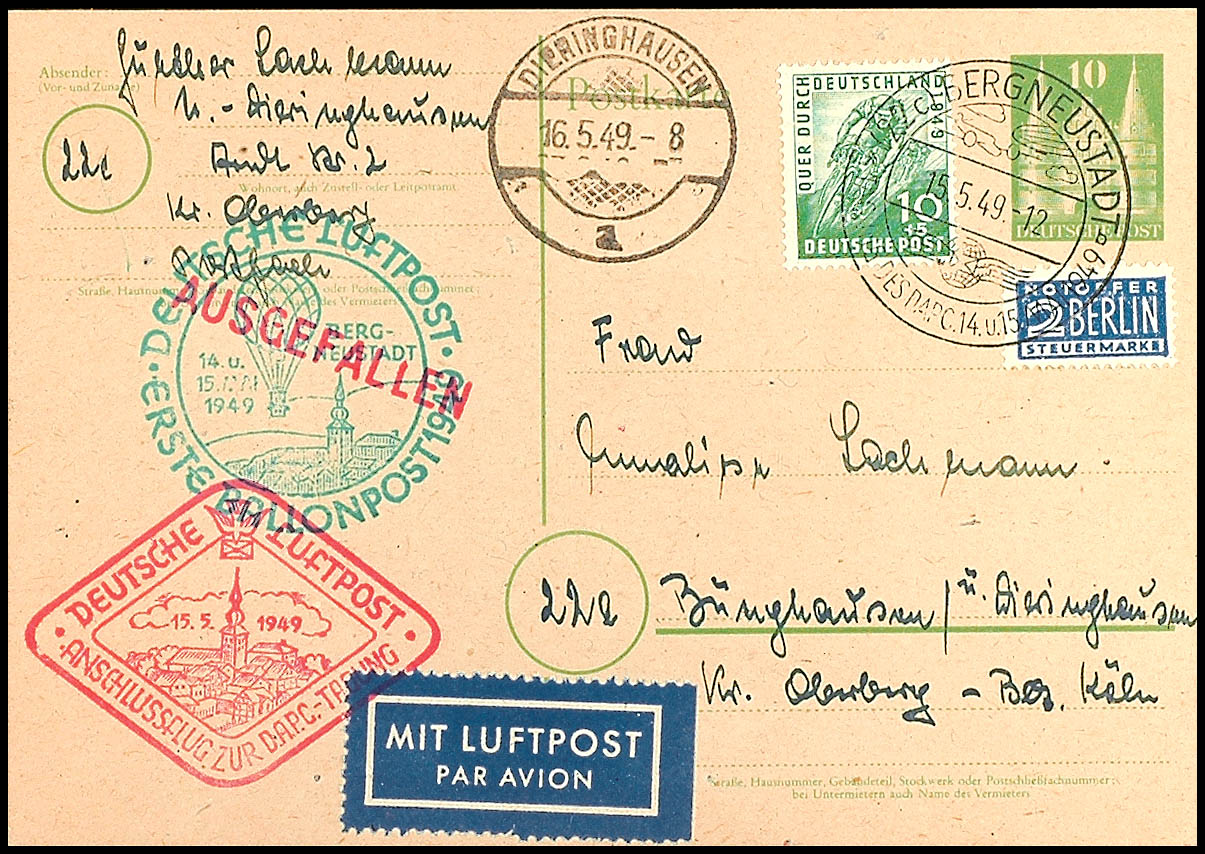 Absender:
(Vor- und Zuname)
Günther Lachmann
b. - Dieringhausen
22c
Wohnort, auch Zustell- oder Leitpostamt
Kr. Oberberg
Straße, Hausnummer oder Postschließfachnummer;
des Vermieters
DEUTSCHE LUFTPOST · ERSTE BALLONPOST 1949 ·
BERG-
NEUSTADT
14. u.
15. MAI
1949
AUSGEFALLEN
DEUTSCHE LUFTPOST
15. 5. 1949
· ANSCHLUSSFLUG ZUR D.A.P.C.-TAGUNG ·
MIT LUFTPOST
PAR AVION
Postka
DIERINGHAUSEN
16.5.49.-8
a
QUER DURCH DEUTSCHLAND 1949
10
+5
DEUTSCHE POST
BERGNEUSTADT
15.5.49.-12
DES DAPC. 14. u. 15. 1949
10
DEUTSCHE POST
NOTOPFER
2 BERLIN
STEUERMARKE
Annaliese Lachmann
22c Bünghausen / ü. Dieringhausen
Kr. Oberberg - Bez. Köln
Straße, Hausnummer, Gebäudeteil, Stockwerk oder Postschließfachnummer;
bei Untermietern auch Name des Vermieters